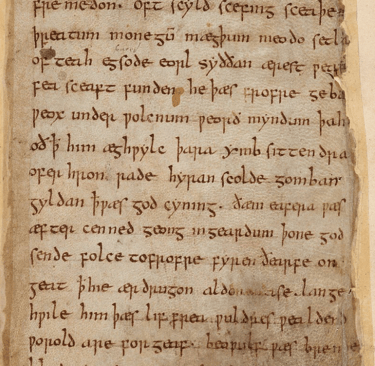 fremedon. oft scyld scefing sceaþe
þreatum monegū mægþum meodo setla
of teah egsode eorl syððan ærest ƿear
fea sceaft funden he þæs frofre geba
ƿeox under ƿolcnum ƿeorð myndum þah
oð ꝥ him æghƿylc þara ymb sittendra
ofer hron rade hyran scolde gomban
gyldan ꝥ ƿæs god cyning. ðæm eafera ƿæs
æfter cenned geong in geardum þone god
sende folce tofrofre fyren ðearfe on
geat ꝥ hie ær drugon aldor ase. lange
hƿile him þæs lif frea ƿuldres ƿealdend
ƿorold are for geaf. beoƿulf ƿæs breme